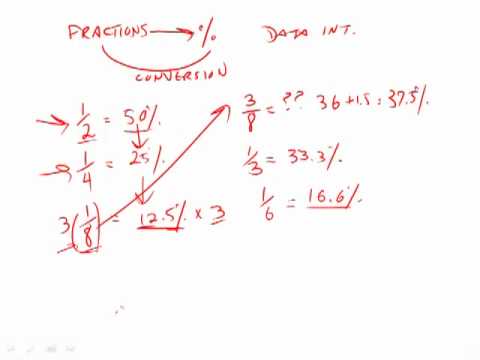 FRACTIONS → %
DATA INT.
CONVERSION
1/2 = 50%
1/4 = 25%
3(1/8) = 12.5% × 3
3/8 = ?? 36 + 1.5 : 37.5%.
1/3 = 33.3%.
1/6 = 16.6%.